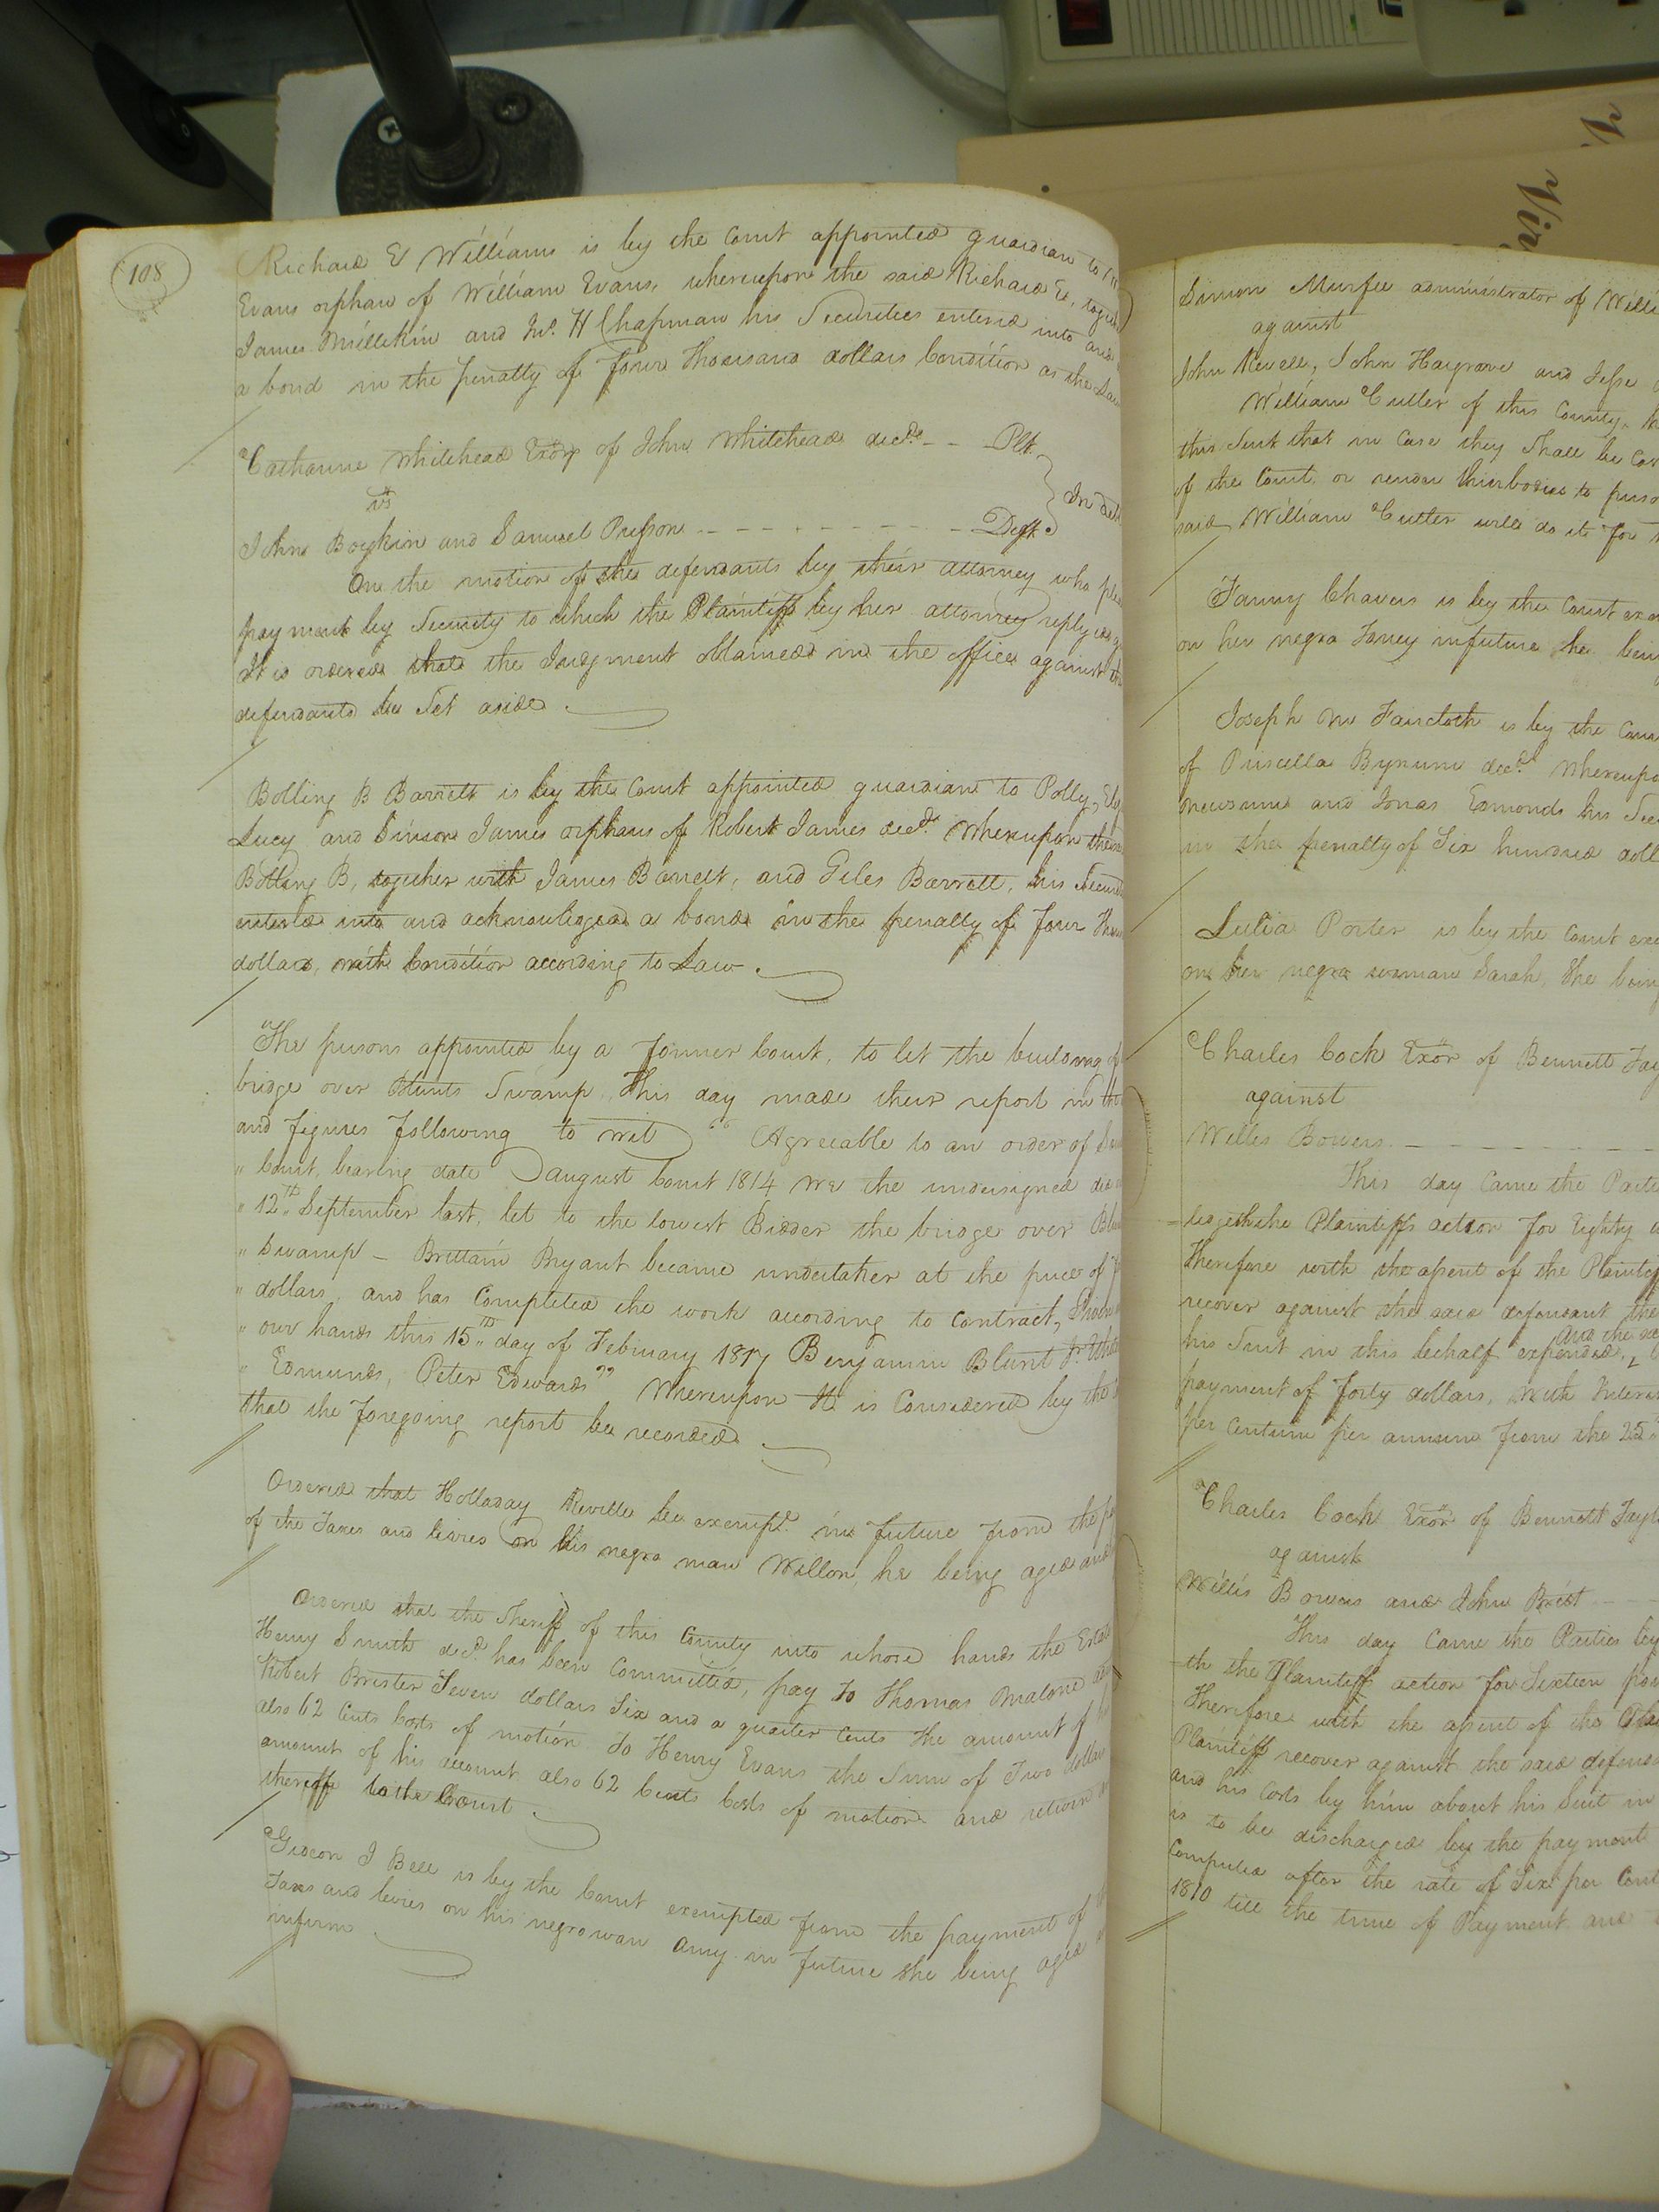 108
Richard E Williams is by the Court appointed guardian to
Evans orphan of William Evans, whereupon the said Richard E, together
James Millikin and Jno. H Chapman his Securities entered into and
a bond in the penalty of four thousand dollars Condition as the Law
Catharine Whitehead Exorx of John Whitehead decd. - - Plt.
vs
In debt
John Boykin and Samuel Presson - - - - - - - - Deft.
On the motion of the defendants by their attorney who plea
payment by Security to which the Plaintiff by her attorney reply
It is ordered that the Judgment obtained in the office against the
defendants be Set aside.
Bolling B Barrett is by the Court appointed guardian to Polly,
Lucy and Simson James orphans of Robert James decd. Whereupon the
Bolling B, together with James Barrett, and Giles Barrett, his Secur
entered into and acknowledged a bond in the penalty of four Thou
dollars, with Condition according to Law.
The persons appointed by a former Court, to let the building of
bridge over Blunts Swamp, This day made their report in the
and figures following to wit " Agreeable to an order of
" Court, bearing date August Court 1814 we the undersigned did
" 12th September last, let to the lowest Bidder the bridge over Blu
" Swamp - Brittain Bryant became undertaker at the price of
" dollars, and has Completed the work according to Contract, Given
" our hands this 15th day of February 1817 Benjamin Blunt Jr.
" Edmunds, Peter Edwards" Whereupon It is Considered by the
that the foregoing report be recorded
Ordered that Holladay Revill be exempt. in future from the
of the Taxes and levies on his negro man Willon, he being aged and
Ordered that the Sheriff of this County into whose hands the Estate
Henry Smith decd. has been Committed, pay to Thomas Malone
Robert Brister Seven dollars Six and a quarter Cents the amount of
also 62 Cents Costs of motion To Henry Evans the Sum of Two dollars
amount of his account also 62 Cents Costs of motion and return
thereof to the Court.
Gideon J Bell is by the Court exempted from the payment of
Taxes and levies on his negro woman Amy in future she being aged
infirm
Simon Murfee administrator of Willi
against
John Revell, John Hargrave and Jesse
William Cutler of this County,
this Suit that in Case they Shall be Cas
of the Court, or render their bodies to priso
said William Cutler will do it for
Fanny Chavis is by the Court exe
on her negro Fanny in future she bein
Joseph W Faircloth is by the Cour
of Priscilla Bynum decd. Whereupo
Newsums and Jonas Edmonds his Sec
in the penalty of Six hundred doll
Lulia Porter is by the Court exe
on her negro woman Sarah, She being
Charles Cock Exor of Bennett Tay
against
Willis Bowers - - - - - -
This day Came the Partie
ledgeth the Plaintiffs action for Eighty
Therefore with the assent of the Plaintiff
recover against the said defendant the
his Suit in this behalf expended,
and the sa
payment of forty dollars, with Interes
per Centum per annum from the 25th
Charles Cock Exor of Bennett Tayl
against
Willis Bowers and John Britt - -
This day Came the Parties by
th the Plaintiff action for Sixteen pou
Therefore with the assent of the Plai
Plaintiff recover against the said defenda
and his Costs by him about his Suit in
is to be discharged by the payment
Computed after the rate of Six per Cent
1810 till the time of Payment and